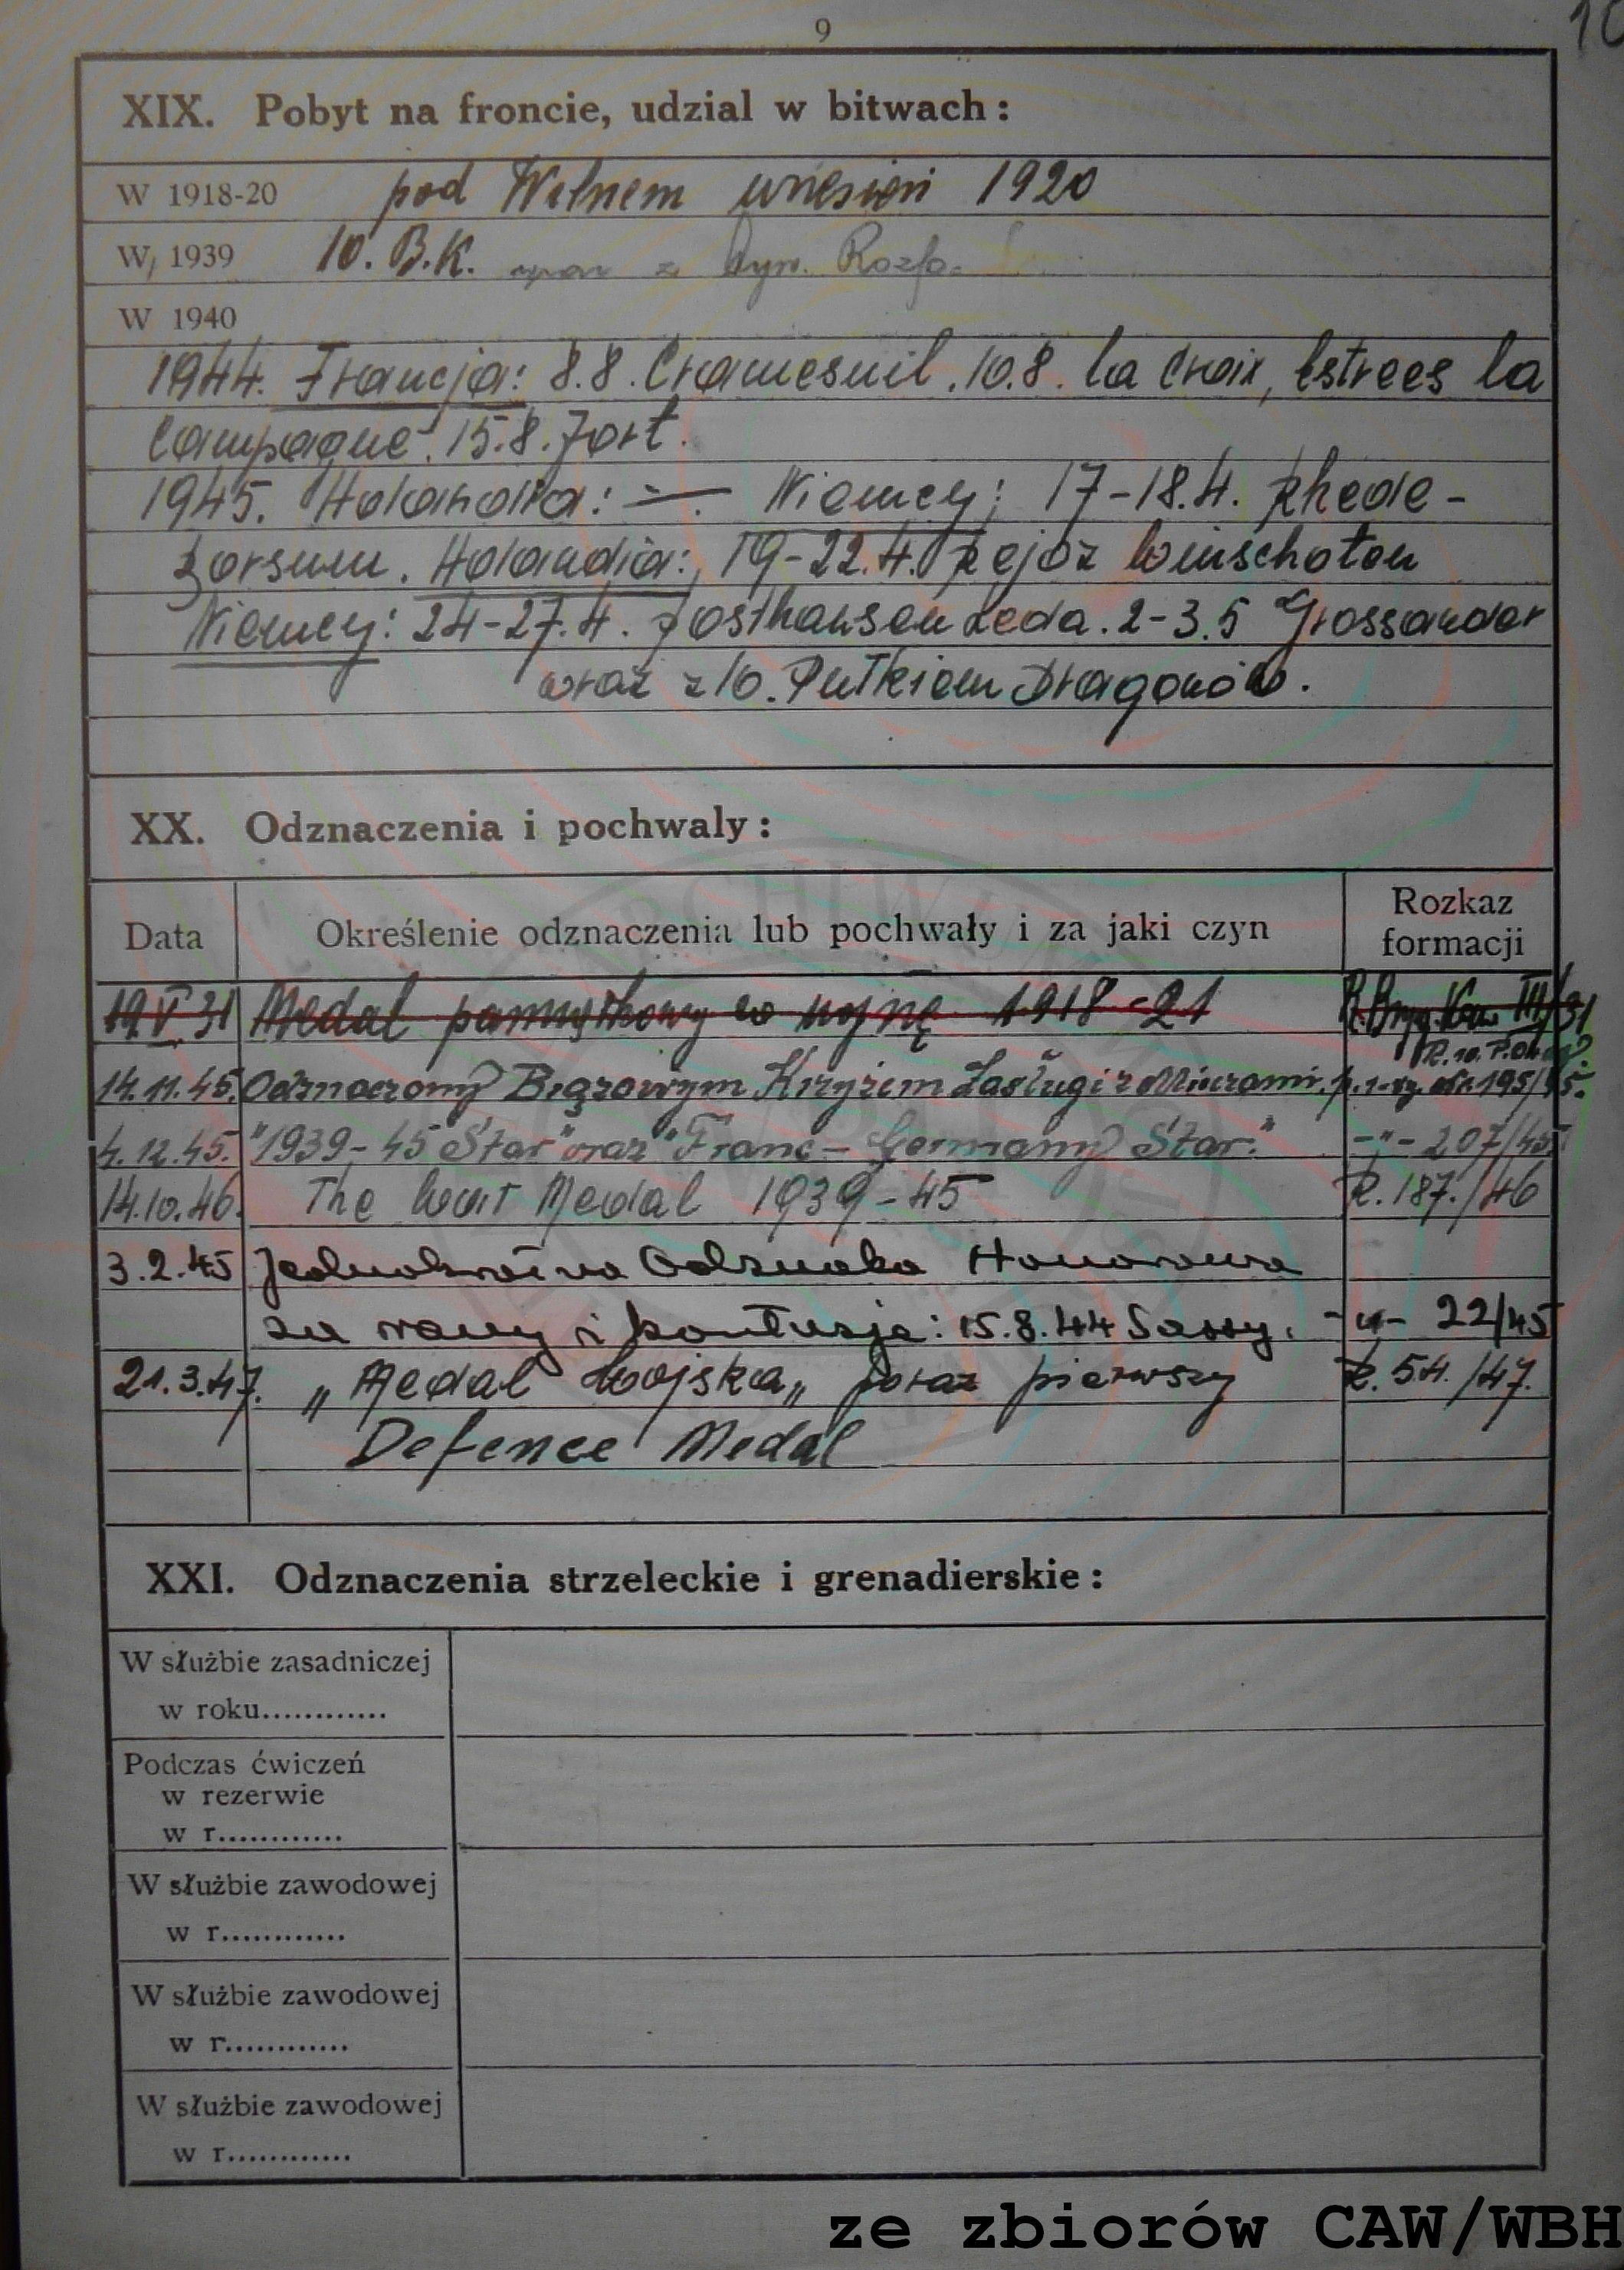 9
10
XIX. Pobyt na froncie, udzial w bitwach:
W 1918-20 pod Wilnem wrzesień 1920
W 1939 10. B.K. wraz z Dyw. Rozp.
W 1940
1944. Francja: 8.8. Cramesnil. 10.8. La Croix, Estrees la
Campagne. 15.8. Jort.
1945. Holandia: Niemcy: 17-18.4. Rhede-
Borsum. Holandia: 19-22.4. Rejon Winschoten
Niemcy: 24-27.4. Posthausen Leda. 2-3.5 Grossander
wraz z 10. Pułkiem Dragonów.
XX. Odznaczenia i pochwaly:
Data Określenie odznaczenia lub pochwały i za jaki czyn Rozkaz formacji
19 V 31 Medal pamiątkowy za wojnę 1918-21 R. Bryg. Kaw. III/31
R. 10. P.
14.11.45. Odznaczony Brązowym Krzyżem Zasługi z Mieczami. 195/45.
4.12.45. "1939-45 Star" oraz "Franc-Germany Star." -"- 207/45
14.10.46. The War Medal 1939-45 R. 187./46
3.2.45 Jednokrotna Odznaka Honorowa
za rany i kontuzje: 15.8.44 Sassy. -"- 22/45
21.3.47. „Medal Wojska„ poraz pierwszy R. 54./47.
Defence Medal
XXI. Odznaczenia strzeleckie i grenadierskie:
W służbie zasadniczej
w roku............
Podczas ćwiczeń
w rezerwie
w r............
W służbie zawodowej
w r............
W służbie zawodowej
w r............
W służbie zawodowej
w r............
ze zbiorów CAW/WBH